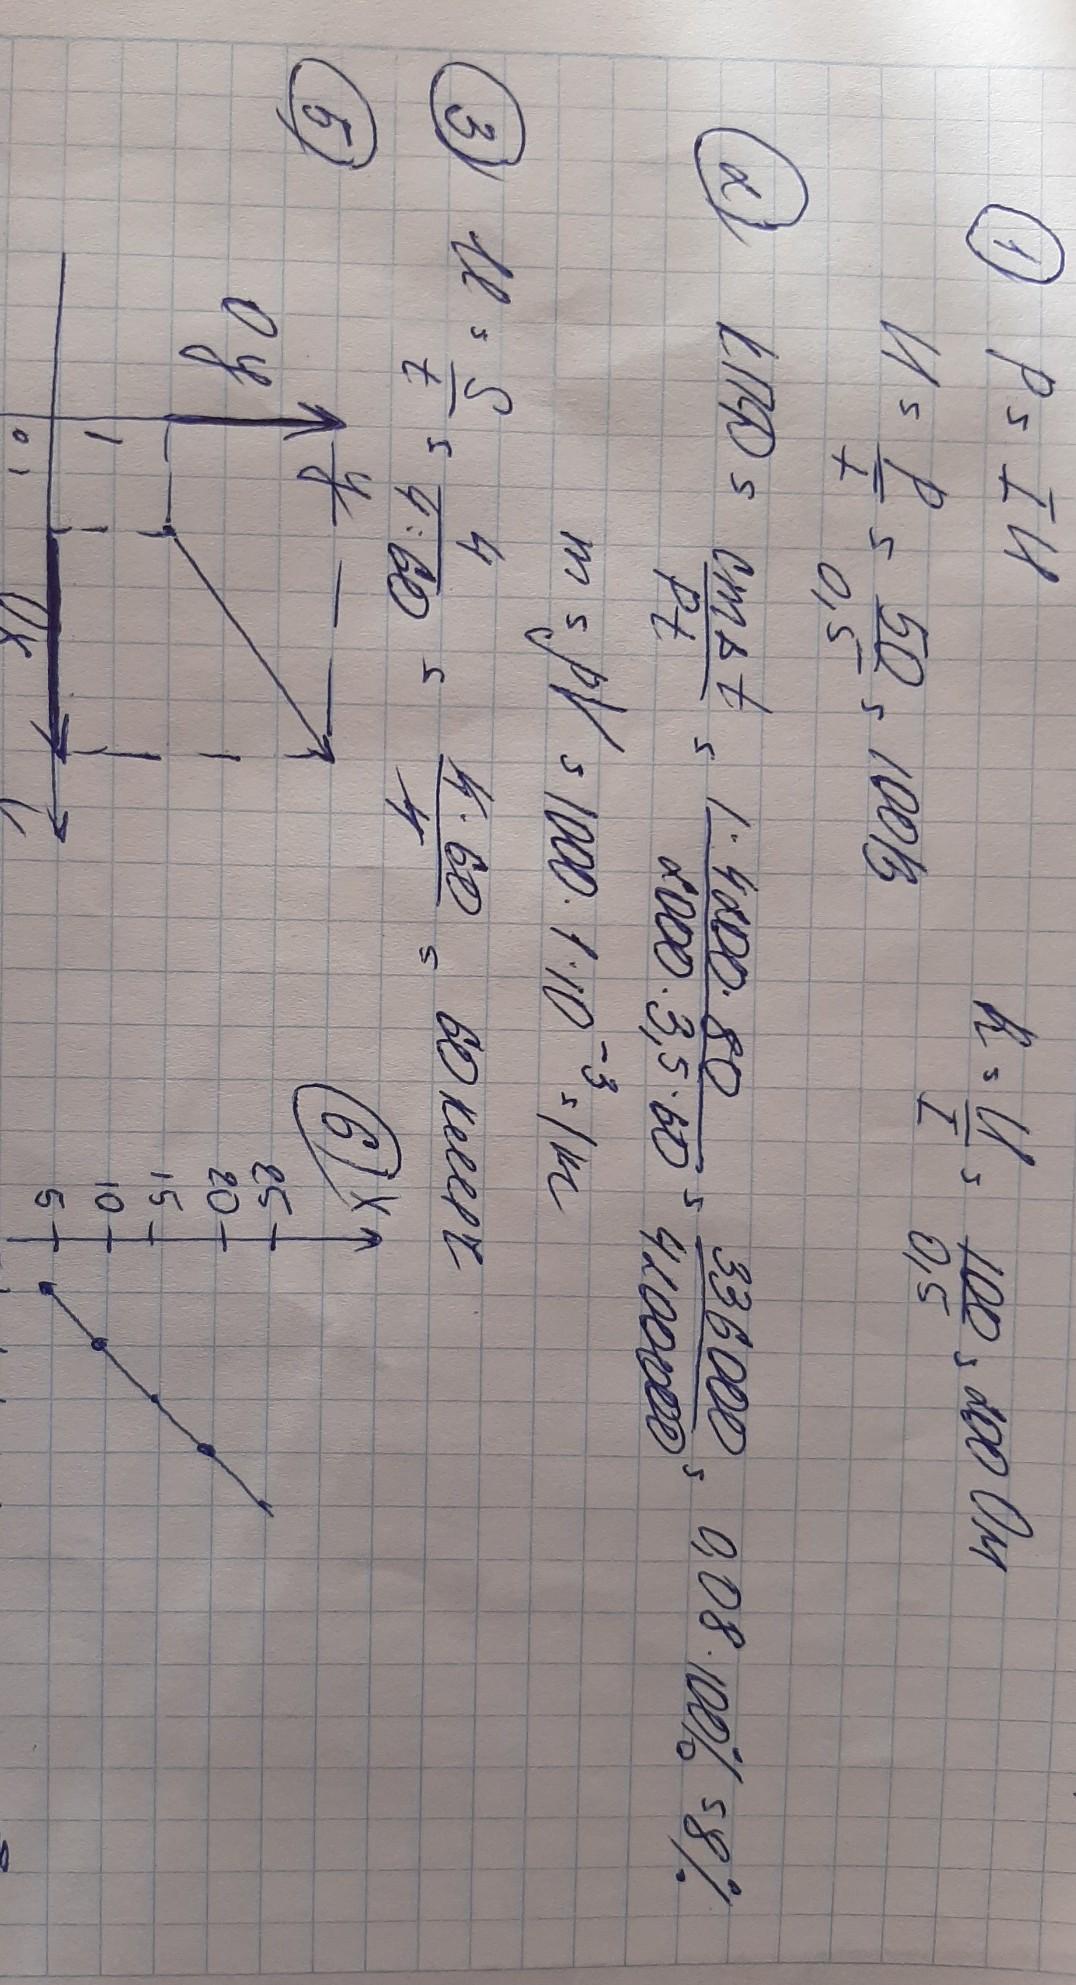 1
P = IU
R = U/I = 100/0,5 = 200 Ом
U = P/I = 50/0,5 = 100В
2
КПД = cm△t/Pt = 1·4200·80/2000·3,5·60 = 336000/4200000 = 0,08·100% = 8%
m = ρV = 1000·1·10⁻³ = 1кг
3
U = S/t = 4/4:60 = 4·60/4 = 60 км/ч
5
y
Oy
1
0 1
Ox
6
x
25
20
15
10
5